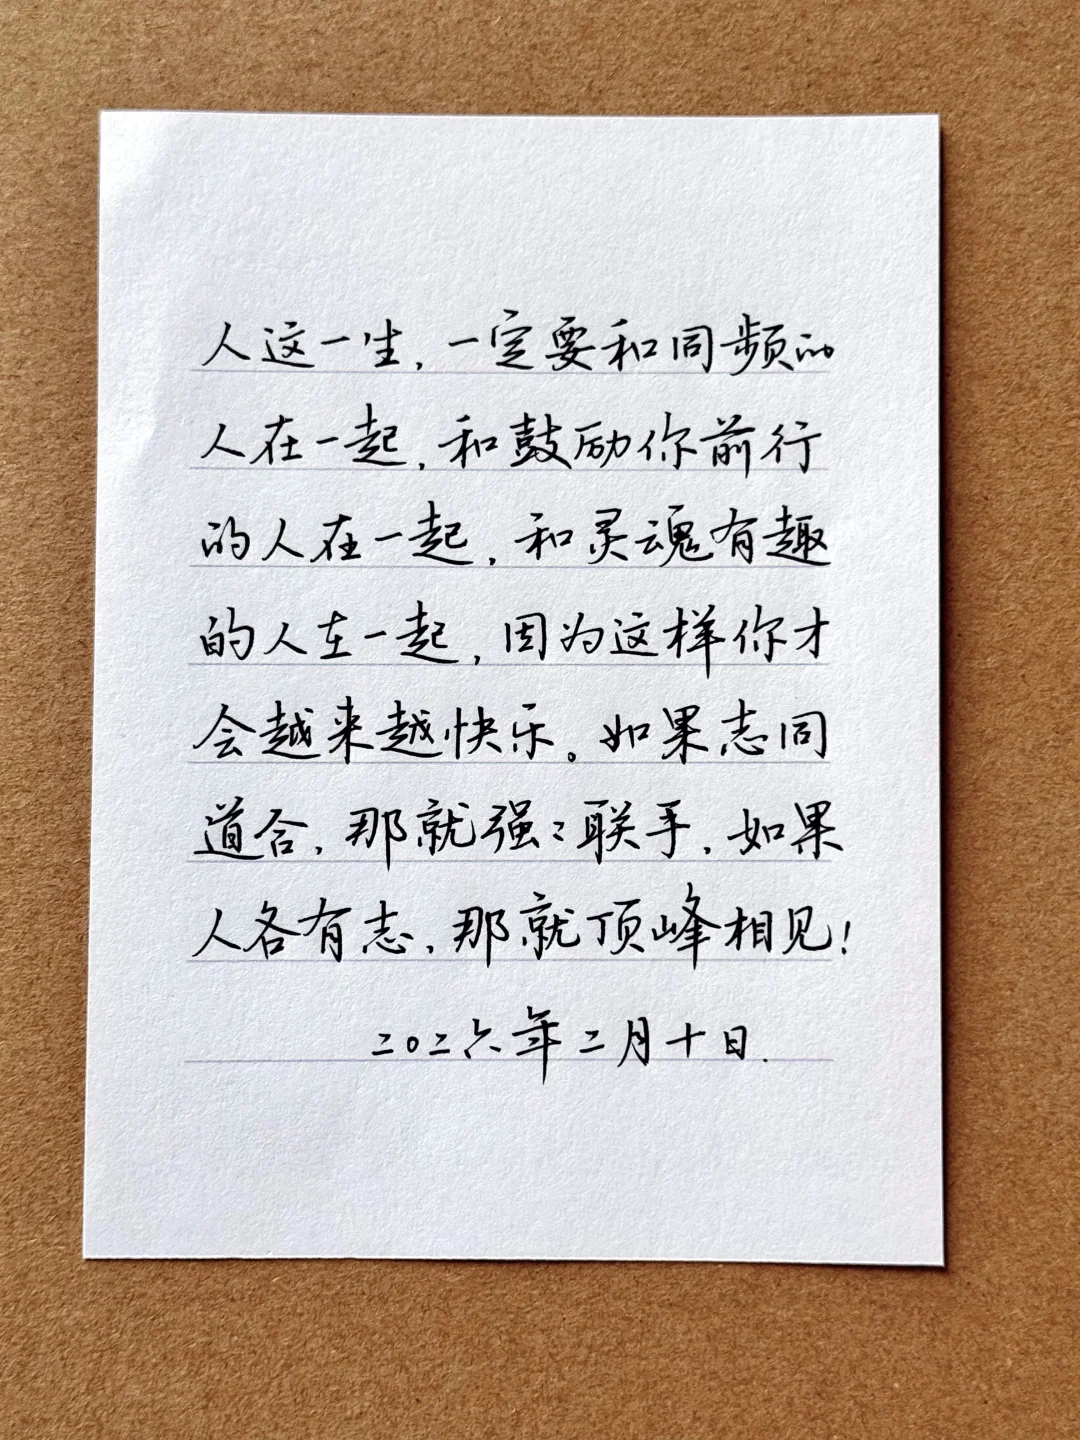 人这一生，一定要和同频的
人在一起，和鼓励你前行
的人在一起，和灵魂有趣
的人在一起，因为这样你才
会越来越快乐。如果志同
道合，那就强々联手，如果
人各有志，那就顶峰相见！
二〇二六年二月十日.